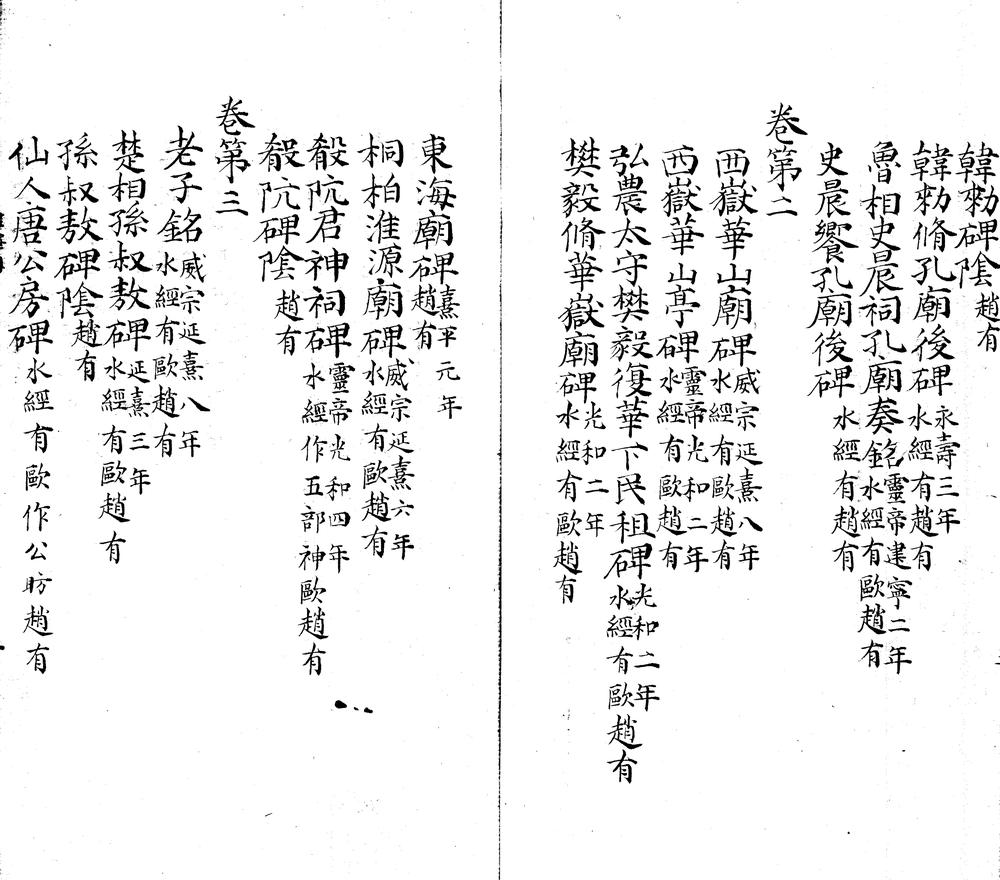 韓勑碑陰趙有
韓勑脩孔廟後碑永壽三年水經有趙有
魯相史晨祠孔廟奏銘靈帝建寧二年水經有歐趙有
史晨饗孔廟後碑水經有趙有
卷第二
西嶽華山廟碑威宗延熹八年水經有歐趙有
西嶽華山亭碑靈帝光和二年水經有歐趙有
弘農太守樊毅復華下民租碑光和二年水經有歐趙有
樊毅脩華嶽廟碑光和二年水經有歐趙有
東海廟碑熹平元年趙有
桐柏淮源廟碑威宗延熹六年水經有歐趙有
殽阬君神祠碑靈帝光和四年水經作五部神歐趙有
殽阬碑陰趙有
卷第三
老子銘威宗延熹八年水經有歐趙有
楚相孫叔敖碑延熹三年水經有歐趙有
孫叔敖碑陰趙有
仙人唐公房碑水經有歐作公昉趙有